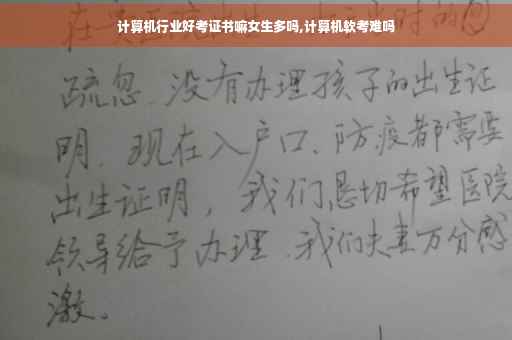 计算机行业好考证书嘛女生多吗,计算机软考难吗
疏忽.没有办理孩子的出生证
明.现在入户口、防疫都需要
出生证明，我们恳切希望医院
领导给予办理.我们夫妻万分感
激。